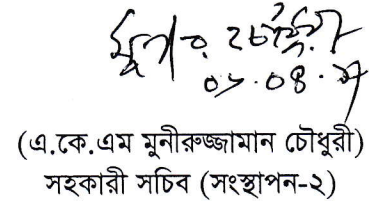 ০১.০৪.
(এ.কে.এম মুনীরুজ্জামান চৌধুরী)
সহকারী সচিব (সংস্থাপন-২)